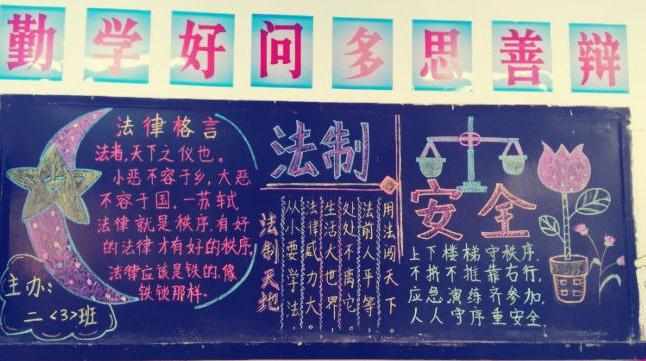 勤学好问多思善辩
法律格言
法者,天下之仪也。
小恶不容于乡,大恶
不容于国,一苏轼
法律就是秩序,有好
的法律才有好的秩序,
法律应该是铁的,像
铁锁那样.
主办:
二<3>班
法制
安全
用法闯天下
法前人平等
处处不离它
生活大世界
法律威力大
从小要学法
法制天地
上下楼梯守秩序.
不挤不推靠右行,
应急演练齐参加,
人人守序重安全.